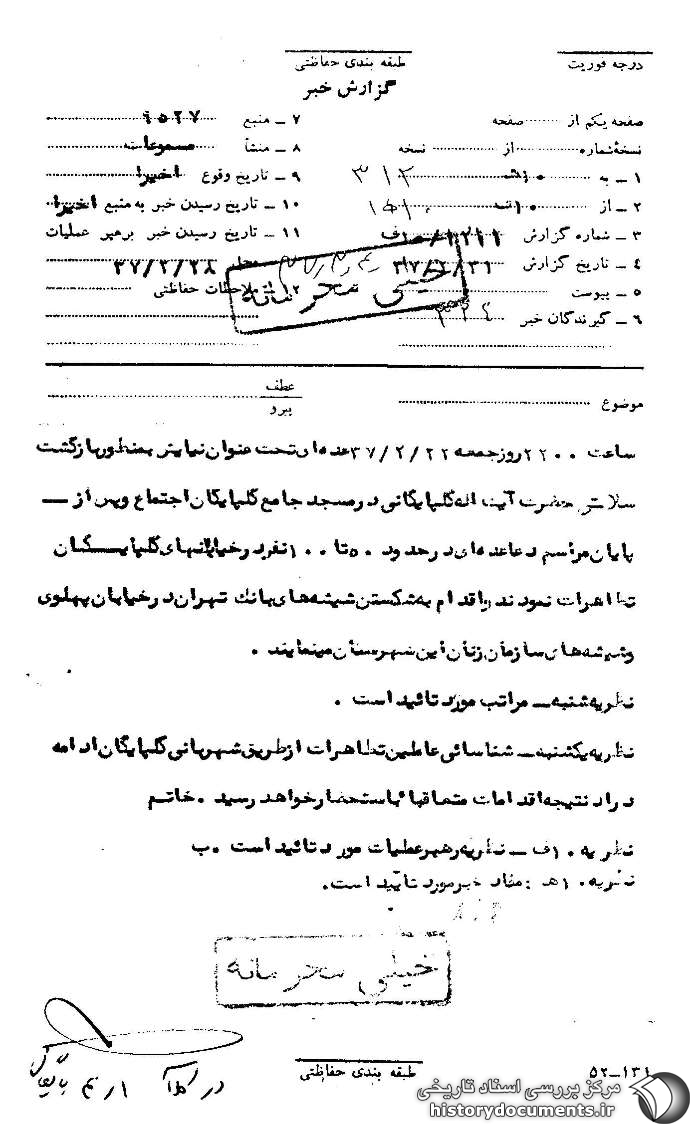 درجه فوریت
طبقه بندی حفاظتی
گزارش خبر
صفحه یکم از صفحه
نسخهٔ شماره از نسخه
۱ ـ به ۱۰هـ ۳۱۲
۲ ـ از ۱۰ف
۳ ـ شماره گزارش ۱۰/۱۲۱۱ف
۴ ـ تاریخ گزارش ۳۷/۲/۳۱
۵ ـ پیوست
۶ ـ گیرندگان خبر
۷ ـ منبع ۶۵۲۷
۸ ـ منشأ مسموعات
۹ ـ تاریخ وقوع اخیرا
۱۰ ـ تاریخ رسیدن خبر به منبع اخیرا
۱۱ ـ تاریخ رسیدن خبر برهبر عملیات
محل ۳۷/۲/۲۸
۱۲ ـ ملاحظات حفاظتی
خیلی محرمانه
موضوع
عطف
پیرو
ساعت ۲۲۰۰ روز جمعه ۳۷/۲/۲۲ عده‌ای تحت عنوان نیایش بمنظور بازگشت
سلامتی حضرت آیت اله گلپایگانی در مسجد جامع گلپایگان اجتماع و پس از ـ
پایان مراسم دعا عده‌ای در حدود ۵۰ تا ۱۰۰ نفر در خیابانهای گلپایـگان
تظاهرات نمودند و اقدام به شکستن شیشه‌های بانک تهران در خیابان پهلوی
و شیشه‌های سازمان زنان این شهرستان مینمایند .
نظریه شنبه ـ مراتب مورد تائید است .
نظریه یکشنبه ـ شناسائی عاملین تظاهرات از طریق شهربانی گلپایگان ادامه
دارد نتیجه اقدامات متعاقبا باستحضار خواهد رسید . خاتم
نظریه ۱۰ف ـ نظریه رهبر عملیات مورد تائید است . ب
نظریه ۱۰هـ : مفاد خبر مورد تأیید است.
خیلی محرمانه
طبقه بندی حفاظتی
۵۲ـ۱۳۱
مرکز بررسی اسناد تاریخی
historydocuments.ir